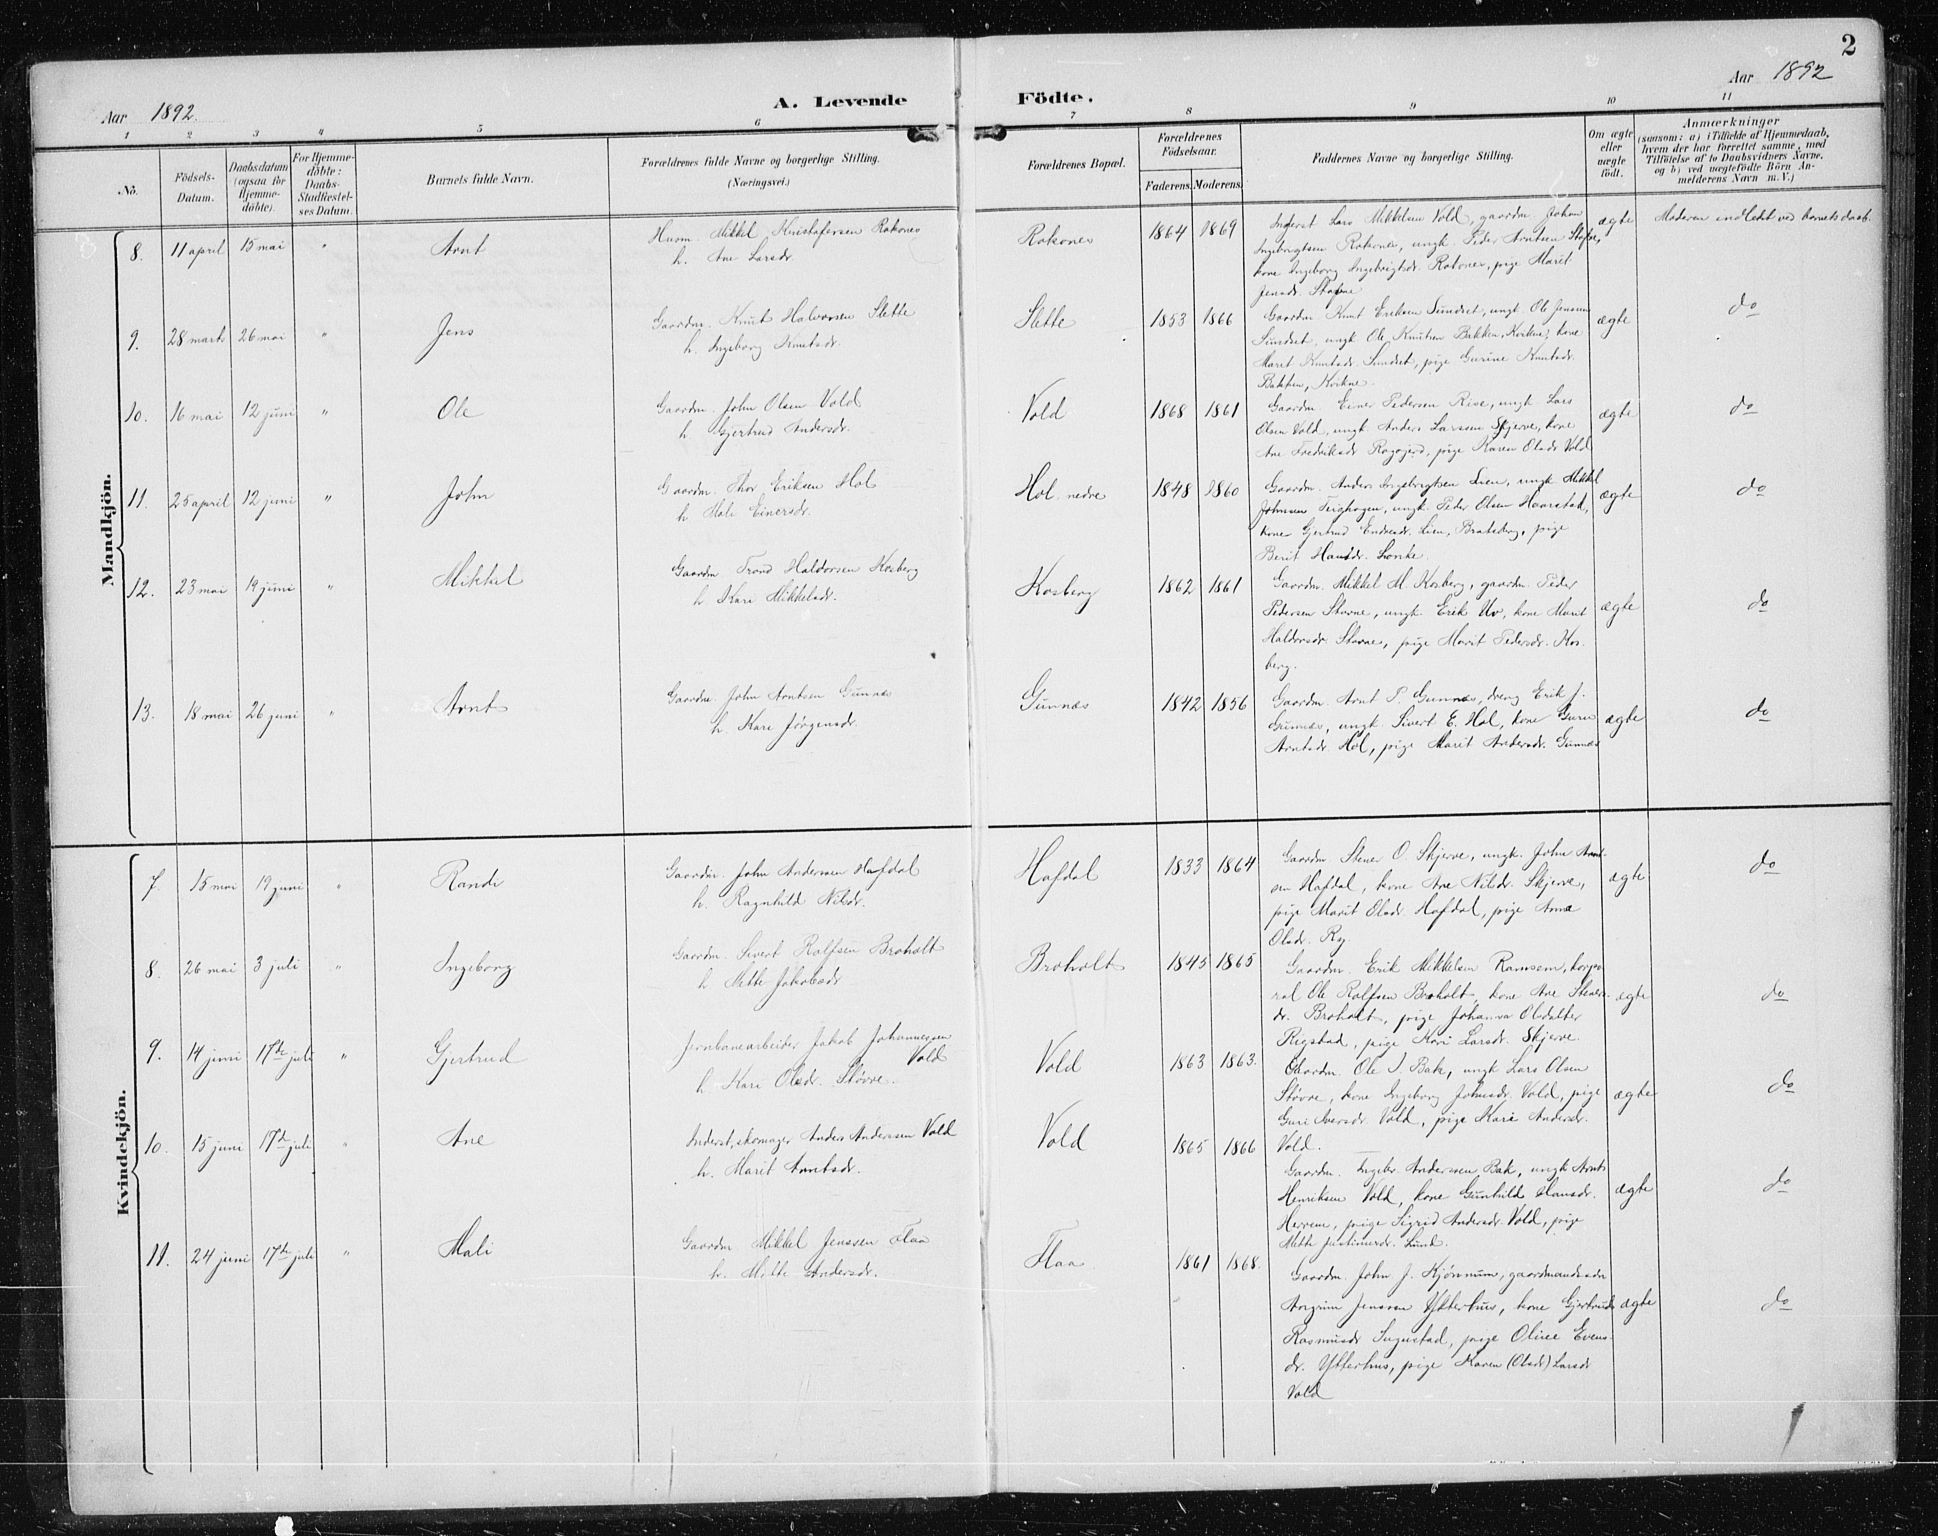 2
Aar 1892.
A. Levende Födte.
Aar 1892
1 2 3 4 5 6 7 8 9 10 11
No.
Födsels-Datum.
Daabsdatum (ogsaa for Hjemmedöbte).
For Hjemmedöbte: Daabs-Stadfæstelses Datum.
Barnets fulde Navn.
Forældrenes fulde Navne og borgerlige Stilling. (Næringsvei.)
Forældrenes Bopæl.
Forældrenes Födselsaar.
Faderens. Moderens.
Faddernes Navne og borgerlige Stilling.
Om ægte eller uægte födt.
Anmærkninger
(saasom: a) i Tilfælde af Hjemmedaab,
hvem der har forrettet samme, med
Tilföielse af to Daabsvidners Navne,
og b) ved uægtefödte Börn Anmelderens Navn m. V.)
Mandkjön.
8. 11 april 15 mai " Arnt
Husm. Mikkel Kristofersen Rokones
h. Ane Larsdr.
Rokones 1864 1869
Inderst Lars Mikkelsen Vold, gaardm. Johan
Ingebrigtsen Rokones, ungk. Peder Arntsen Stofne,
kone Ingeborg Ingebrigtsdr. Rokones, pige Marit
Jensdr. Stofne
ægte
Moderen indledet ved barnets daab.
9. 28 marts 26 mai " Jens
Gaardm. Knut Halvorsen Slette
h. Ingeborg Knutsdr.
Slette 1853 1866
Gaardm. Knut Eriksen Sundset, ungk. Ole Jensen
Sundset, ungk. Ole Knutsen Bakken, Kirkne, kone
Marit Knutsdr. Sundset, pige Gurine Knutsdr.
Bakken, Kirkne.
ægte do
10. 16 mai 12 juni " Ole
Gaardm. John Olsen Vold
h. Gjertrud Andersdr.
Vold 1868 1861
Gaardm. Einer Pedersen Rise, ungk. Lars
Olsen Vold, ungk. Anders Larsen Skjerve, kone
Ane Fredriksdr. pige Karen Olsdr. Vold
ægte do
11. 25 april 12 juni " John
Gaardm. Thor Eriksen Hol
h. Mali Einersdr.
Hol nedre 1848 1860
Gaardm. Anders Ingebrigtsen Lien, ungk. Mikkel
Johnsen Teighagen, ungk. Peder Olsen Haarstad,
kone Gjertrud Endresdr. Lien, Bratsberg, pige
Berit Hansdr.
ægte do
12. 23 mai 19 juni " Mikkel
Gaardm. Trond Haldorsen Kosberg
h. Kari Mikkelsdr.
Kosberg 1862 1861
Gaardm. Mikkel M. Kosberg, gaardm. Peder
Pedersen Stavne, ungk. Erik Uv, kone Marit
Haldorsdr. Stavne, pige Marit Pedersdr. Kos-
berg.
ægte do
13. 18 mai 26 juni " Arnt
Gaardm. John Arntsen Gunnes
h. Kari Jörgensdr.
Gunnæs 1842 1856
Gaardm. Arnt P. Gunnæs, dreng Erik J.
Gunnæs, ungk. Sivert E. Hol, kone Guru
Arntsdr. Hol, pige Marit Andersdr. Gunnæs
ægte do
Kvindekjön.
7. 15 mai 19 juni " Randi
Gaardm. John Anderssen Hafdal
h. Ragnhild Nilsdr.
Hafdal 1833 1864
Gaardm. Stener O. Skjerve, ungk. John
sen Hafdal, kone Ane Nilsdr. Skjerve,
pige Marit Olsdr. Hafdal, pige Anne
Olsdr. Ry.
ægte do
8. 26 mai 3 juli " Ingeborg
Gaardm. Sivert Rolfsen Broholt
h. Mette Jakobsdr
Broholt 1845 1865
Gaardm. Erik Mikkelsen Ramsem, korpo-
ral Ole Rolfsen Broholt, kone Ane Steners-
dr. Broholt, pige Johanna Olsdatter
Rigstad, pige Kari Larsdr. Skjerve.
ægte do
9. 14 juni 17de juli " Gjertrud
Jernbanearbeider Jakob Johannessen
Vold
h. Kari Olsdr. Støvre.
Vold 1863 1863.
Gaardm. Ole J. Bak, ungk Lars Olsen
Støvre, kone Ingeborg Johnsdr. Vold, pige
Guri Iversdr. Vold, pige Kari Andersdr.
Vold.
ægte do
10. 15 juni 17de juli " Ane
Inderst, skomager Anders Anderssen Vold
h. Marit Arntsdr.
Vold 1865 1866
Gaardm. Ingebr. Anderssen Bak, ungk Arnt
Henriksen Vold, kone Gunhild Hansdr.
Herrem, pige Sigrid Andersdr. Vold, pige
Mette Lund.
ægte do
11. 24 juni 17de juli " Mali
Gaardm Mikkel Jenssen Flaa
h. Mette Andersdr.
Flaa 1861 1868.
Gaardm. John J. Kjönnum, gaardmandssön
Arngrim Jenssen Ytterhus, kone Gjertrud
Rasmusdr. pige Oline Evens-
dr. Ytterhus, pige Karen (Olsdr) Larsdr
Vold
ægte do